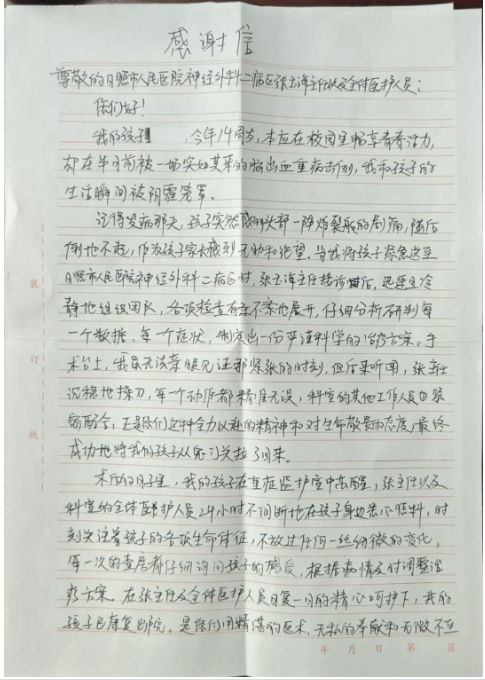 感谢信
尊敬的日照市人民医院神经外科二病区张玉海主任以及全体医护人员：
你们好！
我的孩子 今年14周岁，本应在校园里畅享青春活力，
却在半月前被一场突如其来的脑出血重病击倒，我和孩子的
生活瞬间被阴霾笼罩。
记得发病那天，孩子突然感到头部一阵炸裂般的剧痛，随后
倒地不起，作为孩子家长感到无助和绝望。当我将孩子紧急送至
日照市人民医院神经外科二病区时，张玉海主任接诊后，迅速且冷
静地组织团队，各项检查有条不紊地展开，仔细分析研判每
一个数据、每一个症状，制定出一份严谨科学的治疗方案。手
术台上，我虽无法亲眼见证那紧张的时刻，但后来听闻，张主任
沉稳地操刀，每一个动作都精准无误，科室的其他工作人员也紧
密配合，正是你们这种全力以赴的精神和对生命敬畏的态度，最终
成功地将我的孩子从死门关拉了回来。
术后的日子里，我的孩子在重症监护室中苏醒，张主任以及
科室的全体医护人员24小时不间断地在孩子身边悉心照料，时
刻关注着孩子的各项生命体征，不放过任何一丝细微的变化，
每一次的查房都仔细询问孩子的感受，根据病情及时调整治
疗方案。在张主任及全体医护人员日复一日的精心呵护下，我的
孩子已康复出院。是你们用精湛的医术、无私的奉献和无微不至
装
订
线
年 月 日 第 页